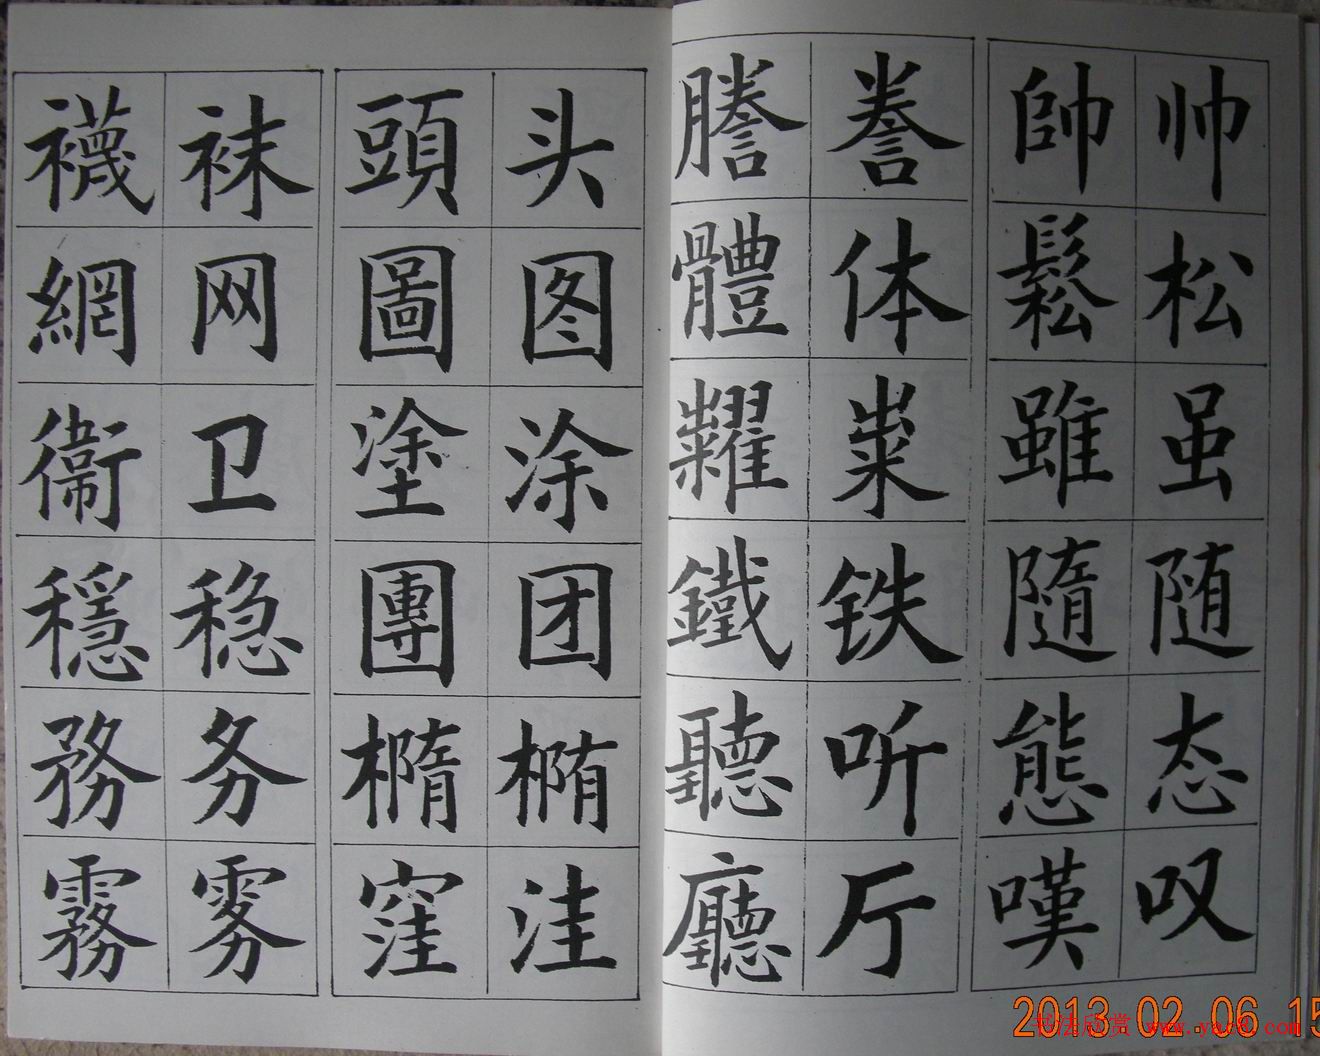 帅松虽随态叹
帥鬆雖隨態嘆
誊体粜铁听厅
謄體糶鐵聽廳
头图涂团椭洼
頭圖塗團橢窪
袜网卫稳务雾
襪網衛穩務霧
2013.02.06 15
书法欣赏 www.yac8.com